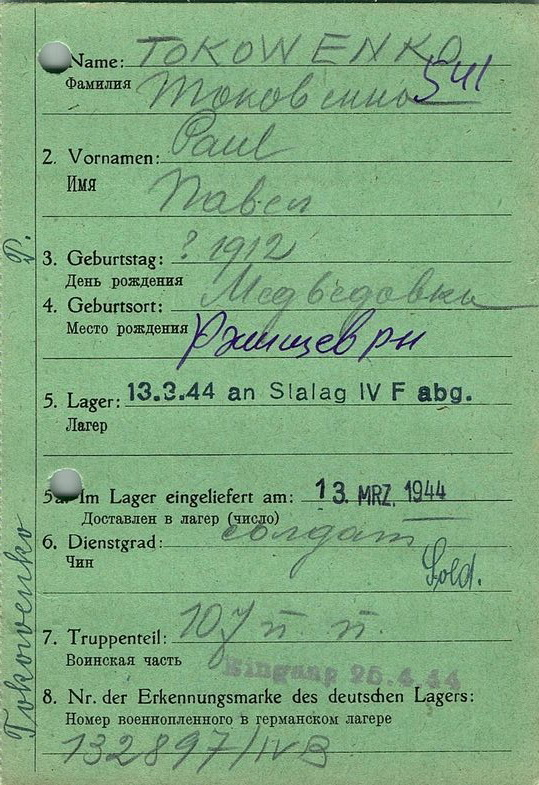 Name: TOKOWENKO
Фамилия Токовенко 541
2. Vornamen: Paul
Имя Павел
3. Geburtstag: ? 1912
День рождения
4. Geburtsort: Медведовка
Место рождения
5. Lager: 13.3.44 an Stalag IV F abg.
Лагер
5a. Im Lager eingeliefert am: 13. MRZ. 1944
Доставлен в лагер (число)
6. Dienstgrad: солдат
Чин Sold.
7. Truppenteil: 107 п. п.
Воинская часть Eingang 25.4.44
8. Nr. der Erkennungsmarke des deutschen Lagers:
Номер военнопленного в германском лагере
132897/IVB
Tokowenko P.